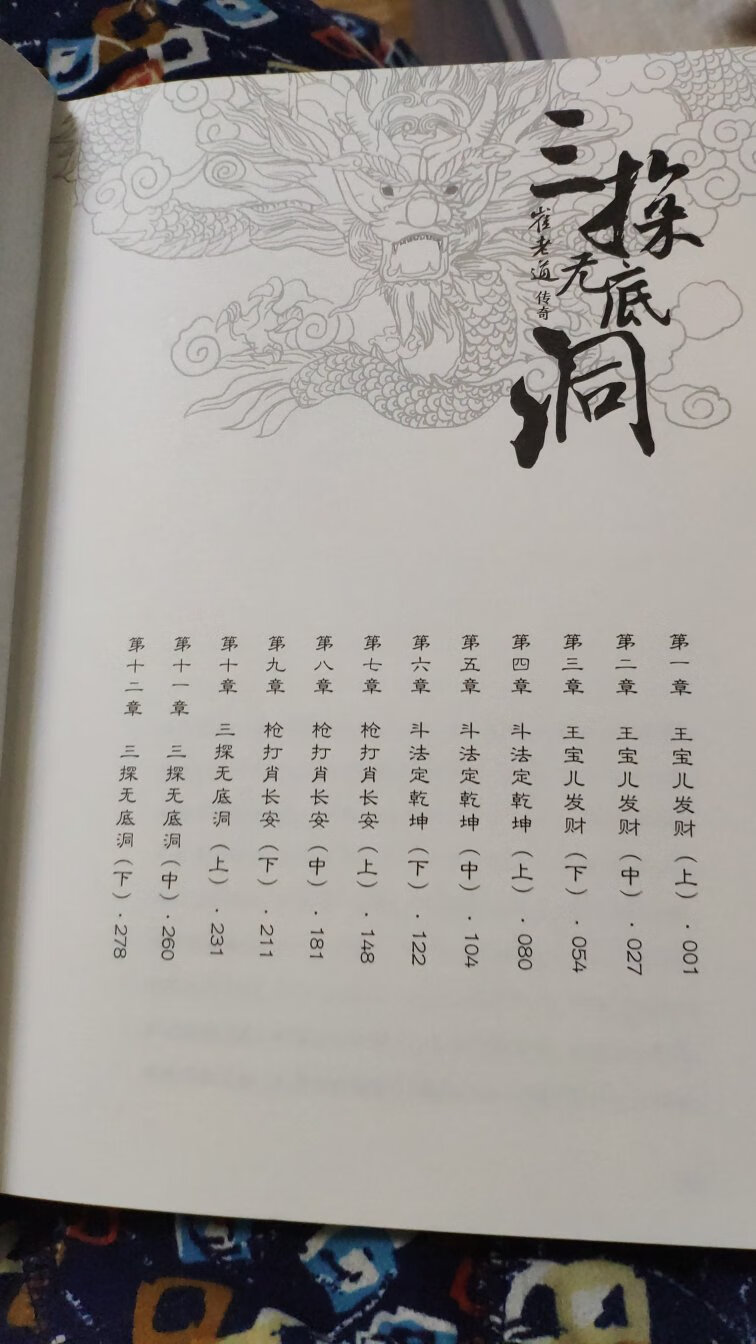 三探无底洞
崔老道传奇
第一章 王宝儿发财（上）·001
第二章 王宝儿发财（中）·027
第三章 王宝儿发财（下）·054
第四章 斗法定乾坤（上）·080
第五章 斗法定乾坤（中）·104
第六章 斗法定乾坤（下）·122
第七章 枪打肖长安（上）·148
第八章 枪打肖长安（中）·181
第九章 枪打肖长安（下）·211
第十章 三探无底洞（上）·231
第十一章 三探无底洞（中）·260
第十二章 三探无底洞（下）·278